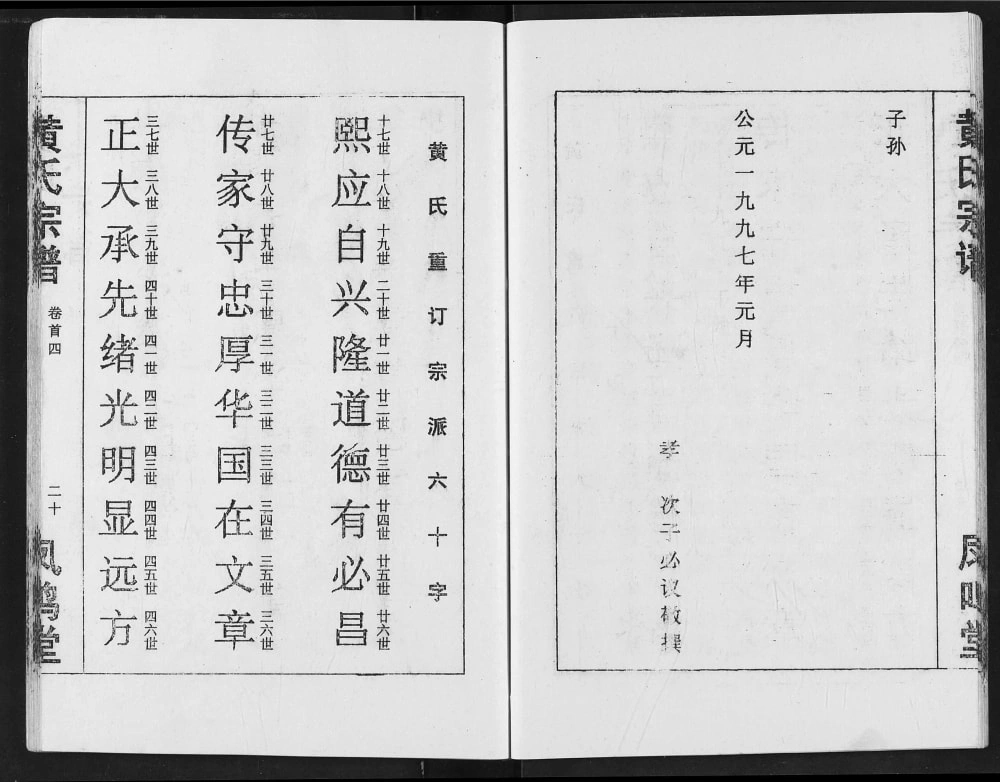 黄氏宗谱
凤鸣堂
子孙
公元一九九七年元月
孝 次子必议敬撰
黄氏重订宗派六十字
十七世 十八世 十九世 二十世 廿一世 廿二世 廿三世 廿四世 廿五世 廿六世
熙应自兴隆道德有必昌
廿七世 廿八世 廿九世 三十世 三一世 三二世 三三世 三四世 三五世 三六世
传家守忠厚华国在文章
三七世 三八世 三九世 四十世 四一世 四二世 四三世 四四世 四五世 四六世
正大承先绪光明显远方
黄氏宗谱
卷首四
二十
凤鸣堂